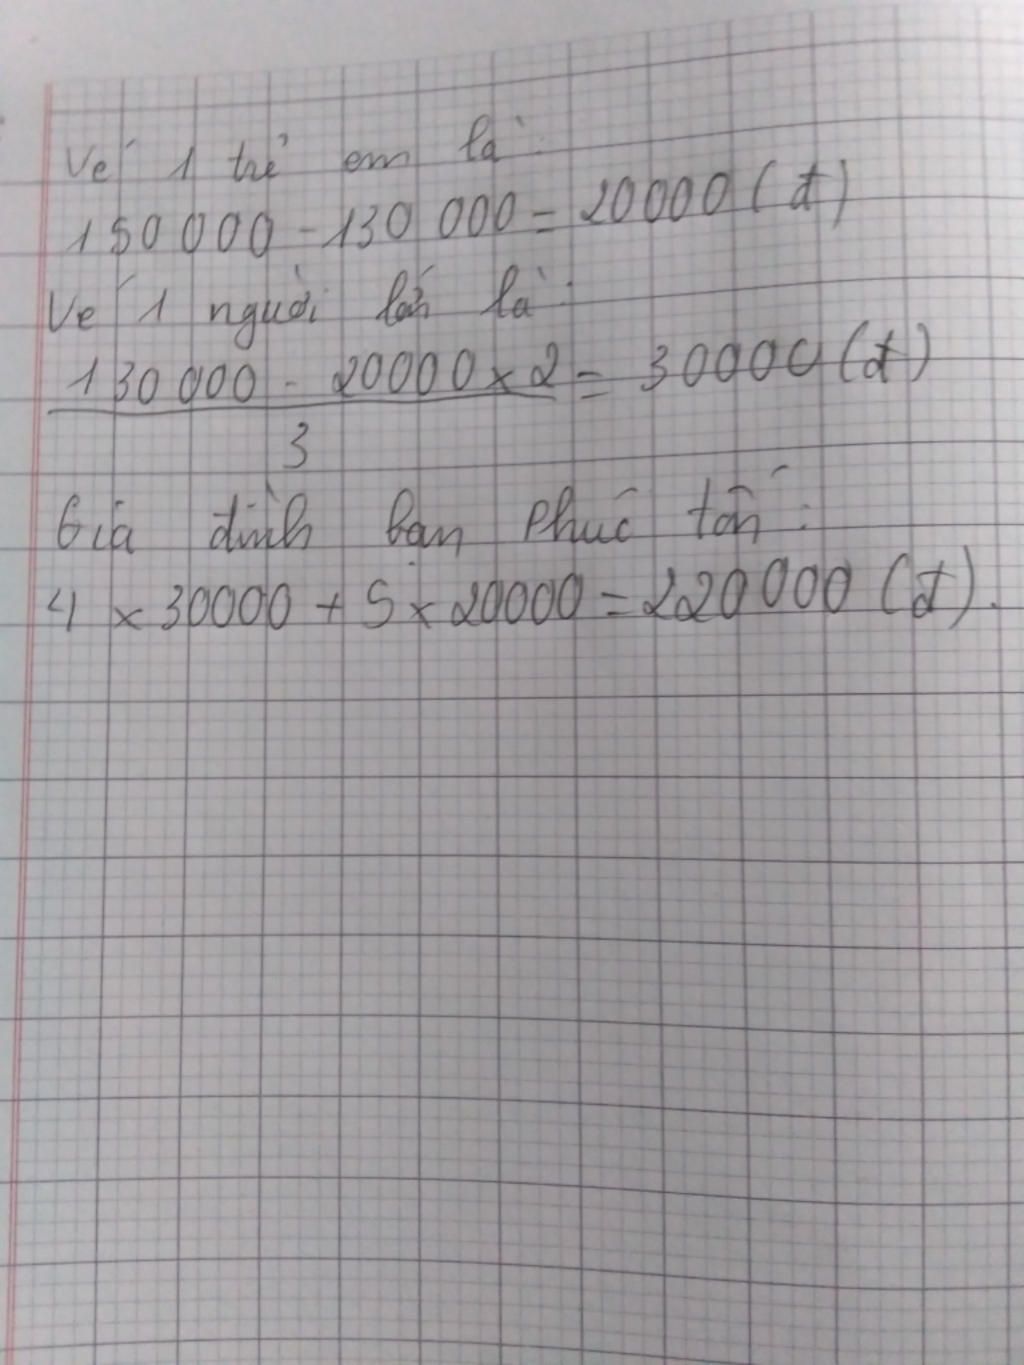 Vé 1 trẻ em là:
150 000 - 130 000 = 20000 (đ)
Vé 1 người lớn là:
130 000 - 20000 x 2 = 30000 (đ)
3
Gia đình bạn Phúc tốn:
4 x 30000 + 5 x 20000 = 220 000 (đ).